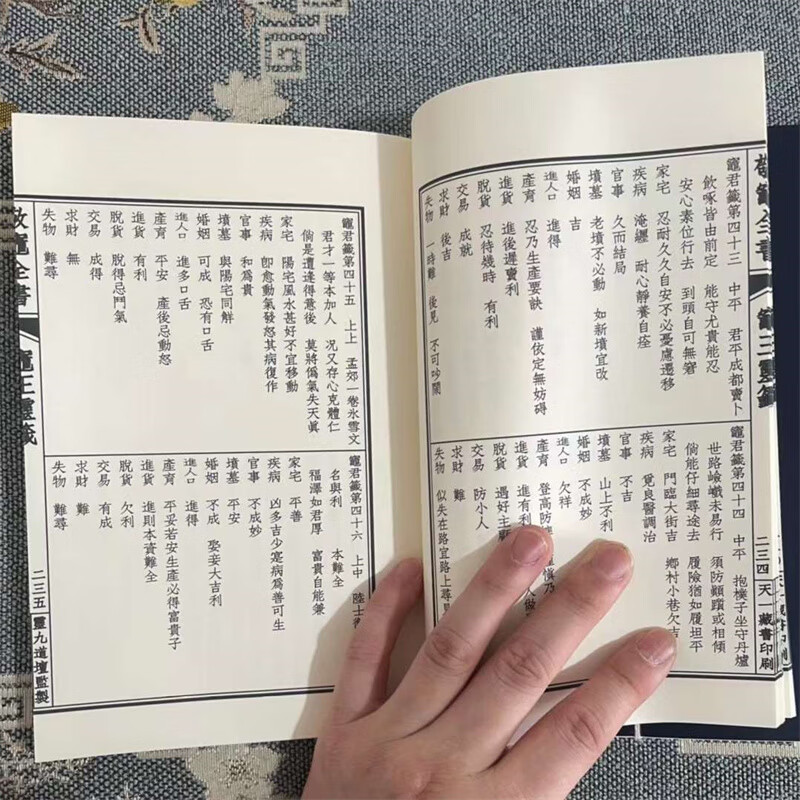 敬竈全書 竈王靈籤
二三四 天一藏書印刷
竈君籤第四十三 中平 君平成都賣卜
飲啄皆由前定 能守尤貴能忍
安心素位行去 到頭自可無窘
家宅 忍耐久久自安不必憂慮遷移
疾病 淹纏 耐心靜養自痊
官事 久而結局
墳墓 老墳不必動 如新墳宜改
婚姻 吉
進人口 進得
產育 忍乃生產要訣 謹依定無妨碍
進貨 進後遲賣利
脫貨 忍待幾時 有利
交易 成就
求財 後吉
失物 一時難 後見 不可吵鬧
竈君籤第四十四 中平 抱樸子坐守丹爐
世路嶮巇未易行 須防顛躓或相傾
倘能仔細尋途去 履險猶如履坦平
家宅 門臨大街吉 鄉村小巷欠吉
疾病 覓良醫調治
官事 不吉
墳墓 山上不利
婚姻 不成妙
進人口 欠祥
產育 登高防
進貨 進有利
脫貨 遇好主顧
交易 防小人
求財 難
失物 似失在路宜路上尋
竈君籤第四十五 上上 孟郊一卷氷雪文
君才一等本加人 況又存心克體仁
倘是遭逢得意後 莫將僞氣失天眞
家宅 陽宅風水甚好不宜移動
疾病 卽愈動氣發怒其病復作
官事 和為貴
墳墓 與陽宅同解
婚姻 可成 恐有口舌
進人口 進多口舌
產育 平安 產後忌動怒
進貨 有利
脫貨 脫得忌鬥氣
交易 成得
求財 無
失物 難尋
竈君籤第四十六 上中 陸士
名與利 本難全
福澤如君厚 富貴自能兼
家宅 平善
疾病 凶多吉少寔病爲善可生
官事 不成妙
墳墓 平安
婚姻 不成 娶妾大吉利
進人口 進得
產育 平妥若安生產必得富貴子
進貨 進則本資難全
脫貨 欠利
交易 有成
求財 難
失物 難尋
敬竈全書 竈王靈籤
二三五 靈九道壇監製